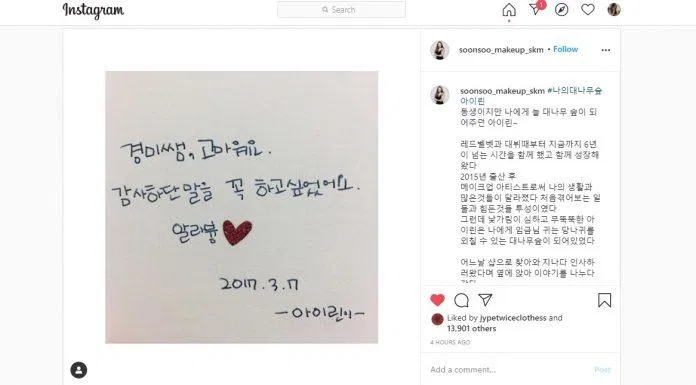 Instagram
Search
1
soonsoo_makeup_skm • Follow
soonsoo_makeup_skm #나의대나무숲
아이린
동생이지만 나에게 늘 대나무 숲이 되
어주던 아이린~
레드벨벳과 데뷔때부터 지금까지 6년
이 넘는 시간을 함께 했고 함께 성장해
왔다
2015년 출산 후
메이크업 아티스트로써 나의 생활과
많은것들이 달라졌다 처음겪어보는 일
들과 힘든것들 투성이였다
그런데 낯가림이 심하고 무뚝뚝한 아
이린은 나에게 임금님 귀는 당나귀를
외칠 수 있는 대나무숲이 되어있었다
어느날 샵으로 찾아와 지나다 인사하
러왔다며 옆에 앉아 이야기를 나누다
경미쌤, 고마워요.
감사하단 말을 꼭 하고싶었어요.
알라븅
2017.3.7
-아이린이-
Liked by jypetwiceclothess and
13,901 others
4 HOURS AGO
Add a comment...
Post